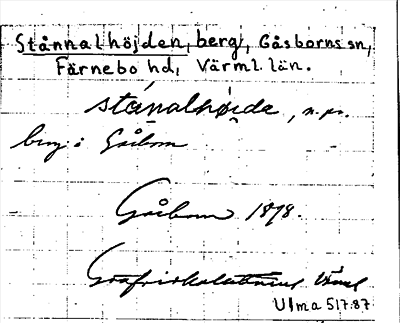 Stånnalhöjden, berg, Gåsborns sn,
Färnebo hd, Värml. län.
stånalhöjda, n. pr.
berg i Gåsborn
Gåsborn 1898.
Ulma 517:87